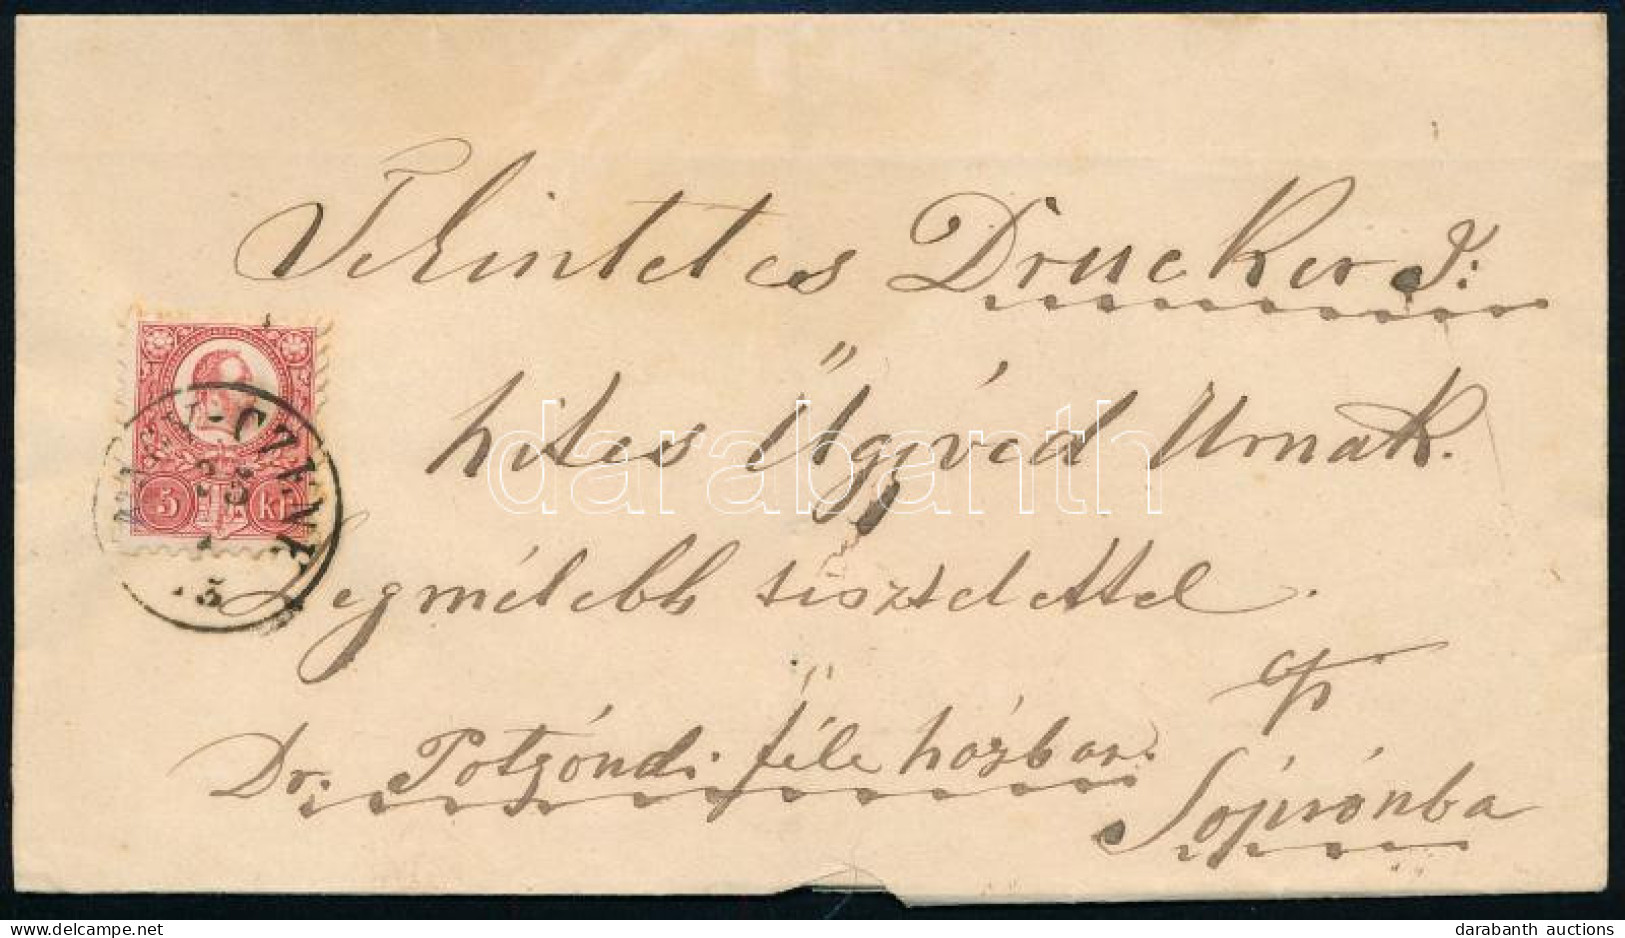 Tekintetes Drucker J:
hites Ügyvéd Urnak.
Legmélebb tisztelettel.
Dr. Potzóndi féle házban.
Soprónba
5 kr
CZENK
darabanth
darabanth auctions